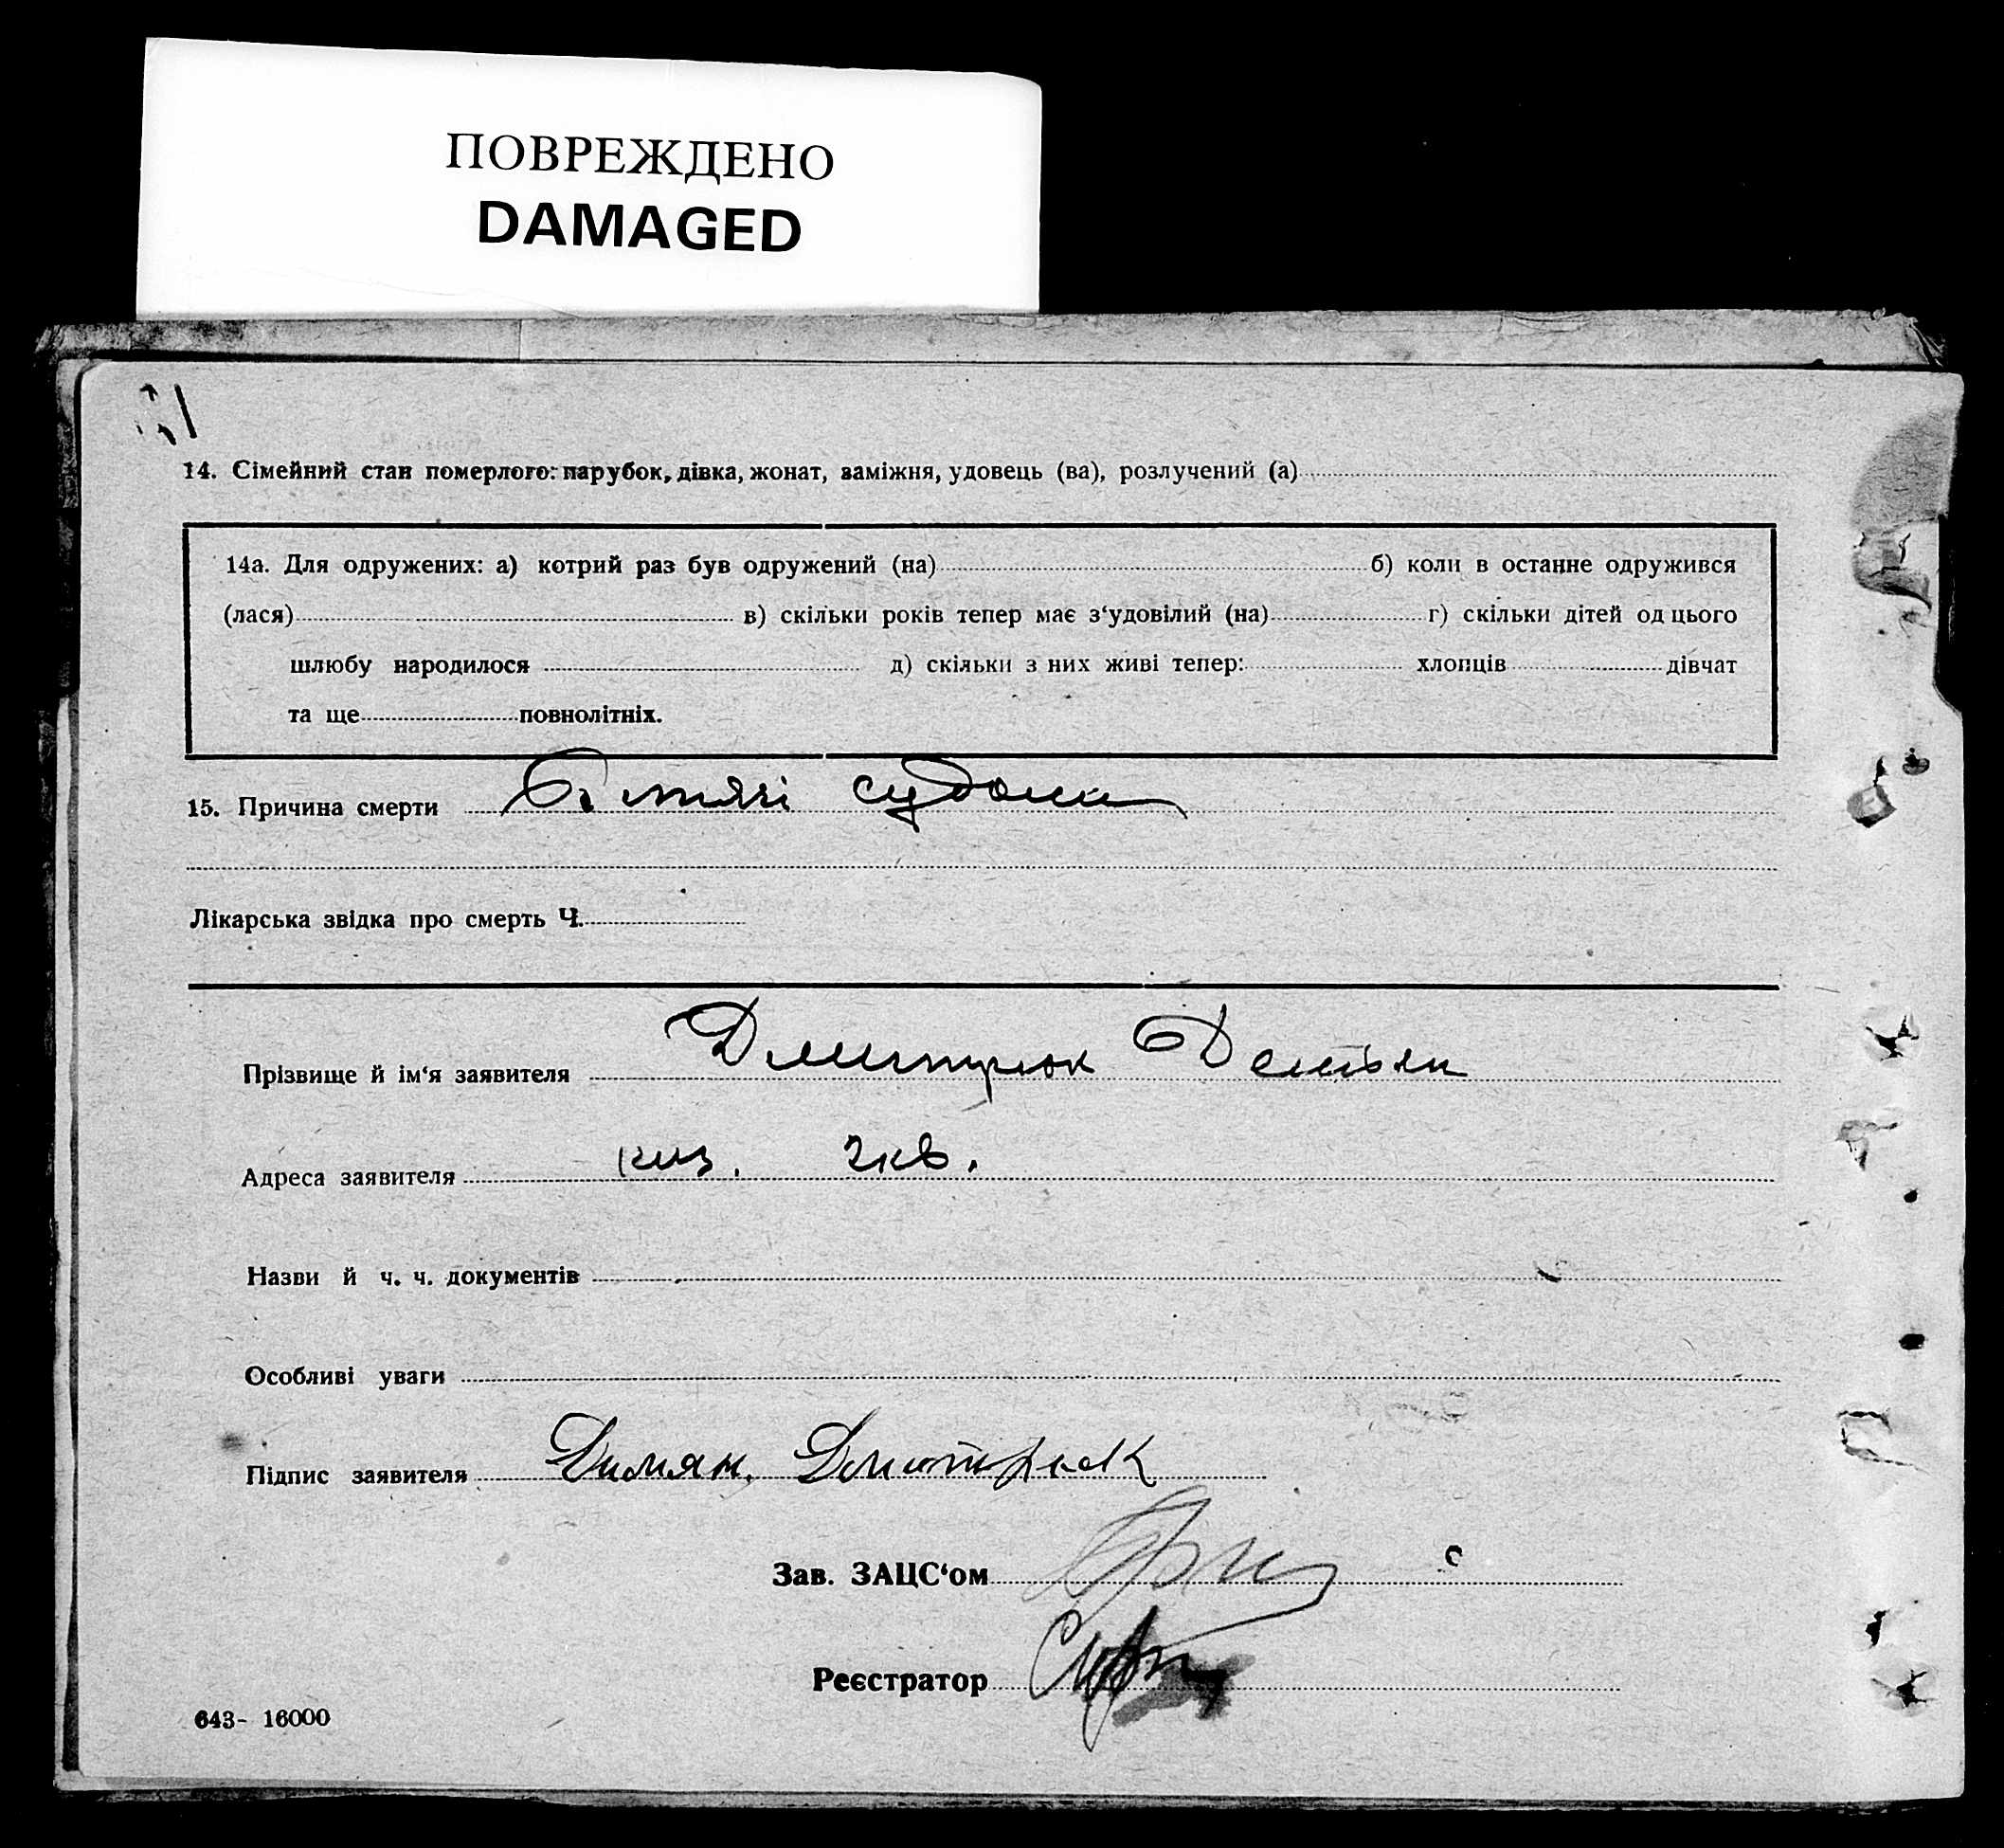 ПОВРЕЖДЕНО
DAMAGED
14. Сімейний стан померлого: парубок, дівка, жонат, заміжня, удовець (ва), розлучений (а)
14а. Для одружених: а) котрий раз був одружений (на) б) коли в останнє одружився
(лася) в) скільки років тепер має з‘удовілий (на) г) скільки дітей од цього
шлюбу народилося д) скільки з них живі тепер: хлопців дівчат
та ще повнолітніх.
15. Причина смерти Дитячі судоми
Лікарська звідка про смерть Ч.
Прізвище й ім‘я заявителя Дмитрюк Демьян
Адреса заявителя 2кв.
Назви й ч. ч. документів
Особливі уваги
Підпис заявителя Димян Дмитрюк
Зав. ЗАЦС‘ом
Реєстратор
643- 16000